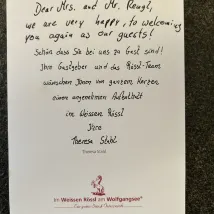 Dear Mrs. and Mr. Rengl,
we are very happy, to welcoming
you again as our guests!
Schön dass Sie bei uns zu Gast sind!
Ihre Gastgeber und das Rössl-Team
wünschen Ihnen von ganzem Herzen
einen angenehmen Aufenthalt
im Weissen Rössl
Ihre
Theresa
Theresa
Im Weissen Rössl am Wolfgangsee